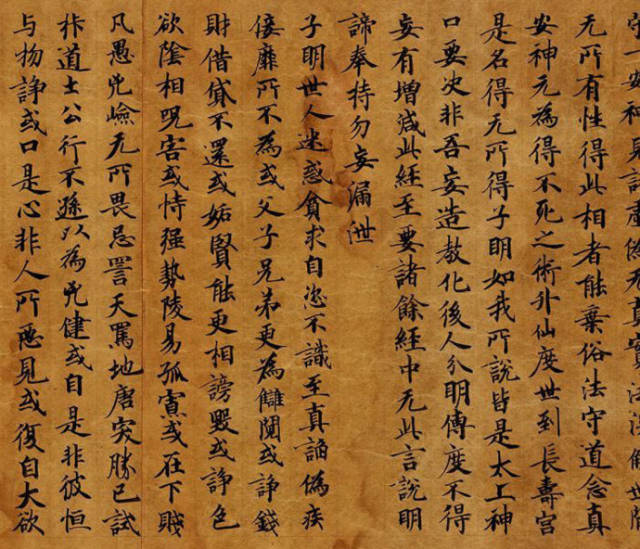 守一安神見諸虛偽无真實法解世間
无所有性得此相者能棄俗法守道念真
安神元為得不死之術升仙度世到長壽宮
是名得无所得子明如我所說皆是太上神
口要決非吾妄造教化後人分明傳度不得
妄有增減此經至要諸餘經中无此言說明
諦奉持勿妄漏泄
子明世人迷惑貪求自恣不識至真諂偽疾
侫靡所不為或父子兄弟更為讎鬩或諍錢
財借貸不還或妬賢能更相謗毀或諍色
欲陰相呪害或恃强勢陵易孤寡或在下賤
凡愚兇嶮无所畏忌詈天罵地唐突勝己試
道士公行不遜以為兇健或自是非彼恒
与物諍或口是心非人所惡見或復自大欲